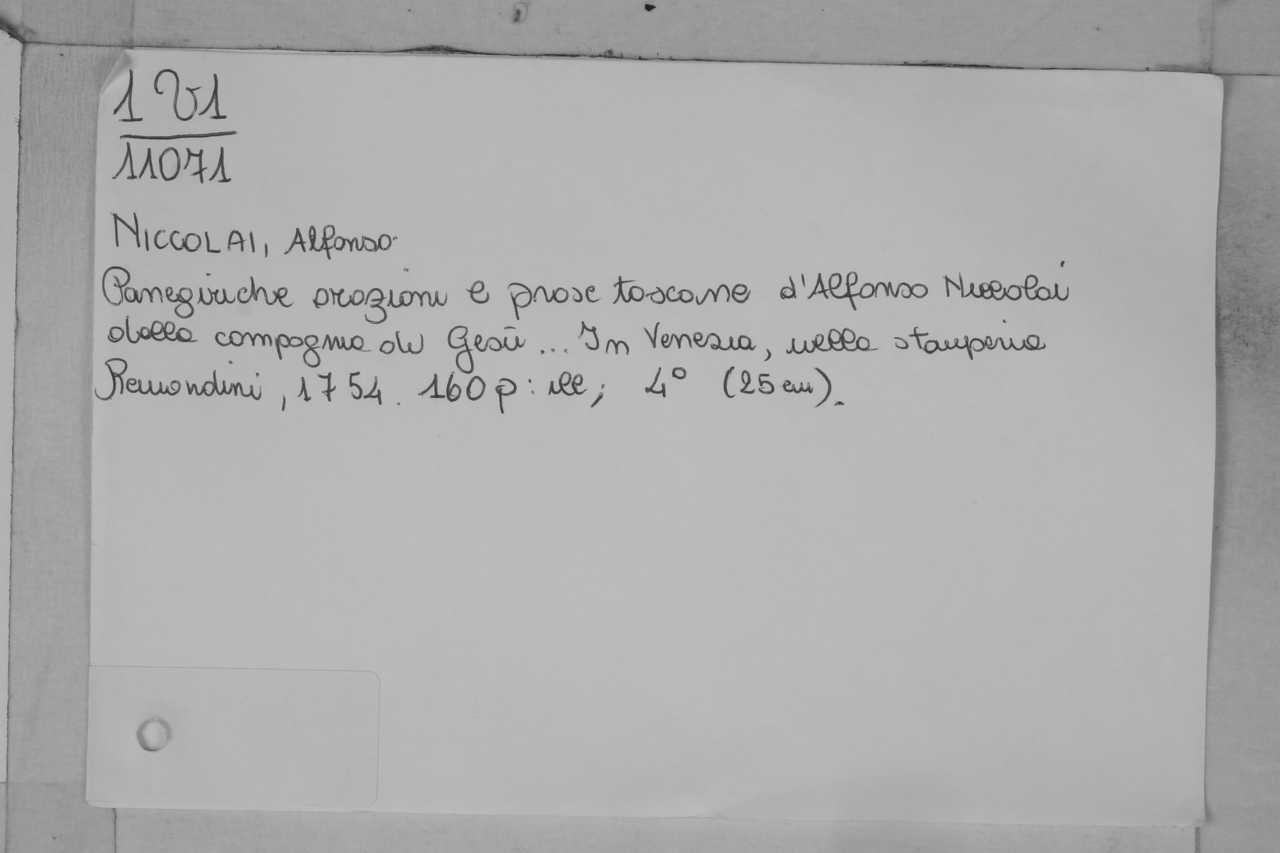 1 V1
11071
NICCOLAI, Alfonso
Panegiriche orazioni e prose toscane d'Alfonso Niccolai
della compagnia di Gesù ... In Venezia, nella stamperia
Remondini, 1754. 160 p : ill ; 4° (25 cm).